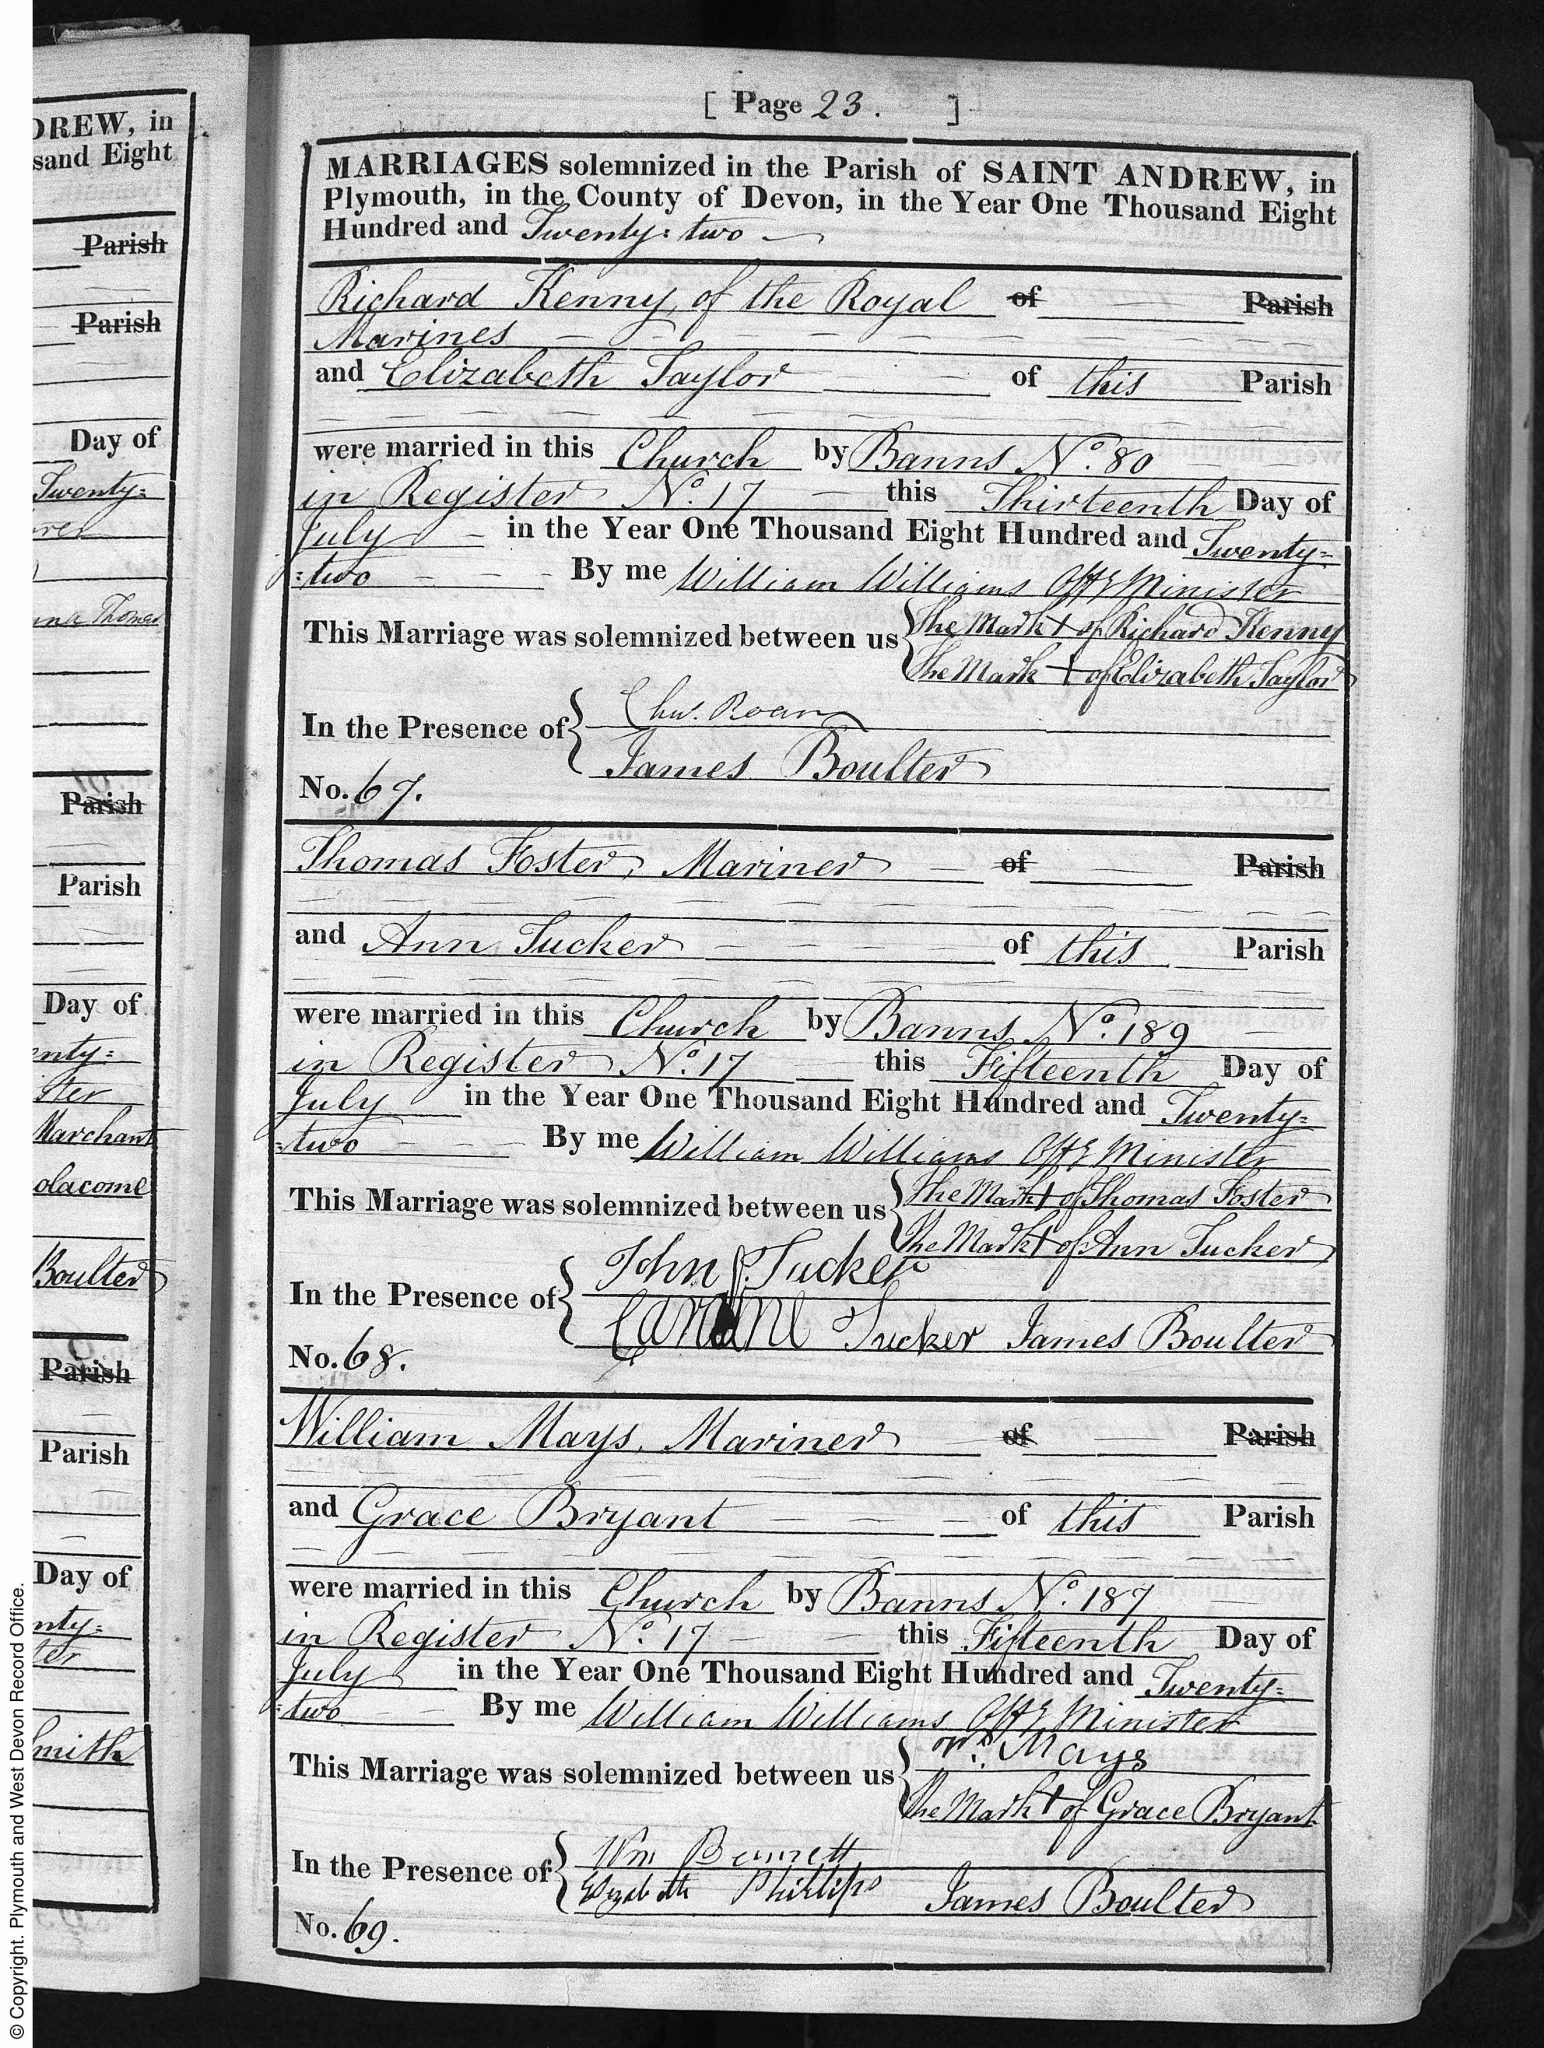 [ Page 23. ]
MARRIAGES solemnized in the Parish of SAINT ANDREW, in
Plymouth, in the County of Devon, in the Year One Thousand Eight
Hundred and Twenty=two
Richard Kenny, of the Royal of Parish
Marines
and Elizabeth Taylor of this Parish
were married in this Church by Banns No. 80
in Register No. 17 this Thirteenth Day of
July in the Year One Thousand Eight Hundred and Twenty=
=two By me William Williams Offg Minister
This Marriage was solemnized between us The Mark + of Richard Kenny
The Mark + of Elizabeth Taylor
In the Presence of Roan
James Boulter
No. 67.
Thomas Foster, Mariner of Parish
and Ann Tucker of this Parish
were married in this Church by Banns No. 189
in Register No. 17 this Fifteenth Day of
July in the Year One Thousand Eight Hundred and Twenty=
=two By me William Williams Offg Minister
This Marriage was solemnized between us The Mark + of Thomas Foster
The Mark + of Ann Tucker
In the Presence of John P. Tucker
Caroline Tucker James Boulter
No. 68.
William Mays, Mariner of Parish
and Grace Bryant of this Parish
were married in this Church by Banns No. 187
in Register No. 17 this Fifteenth Day of
July in the Year One Thousand Eight Hundred and Twenty=
=two By me William Williams Offg Minister
This Marriage was solemnized between us Wm Mays
The Mark + of Grace Bryant
In the Presence of Wm Bennett
Elizabeth Phillips James Boulter
No. 69.
DREW, in
sand Eight
Parish
Parish
Day of
Twenty=
Thomas
Parish
Parish
Day of
enty=
ster
Marchant
olacome
Boulter
Parish
Parish
Day of
nty=
ter
Smith
© Copyright. Plymouth and West Devon Record Office.